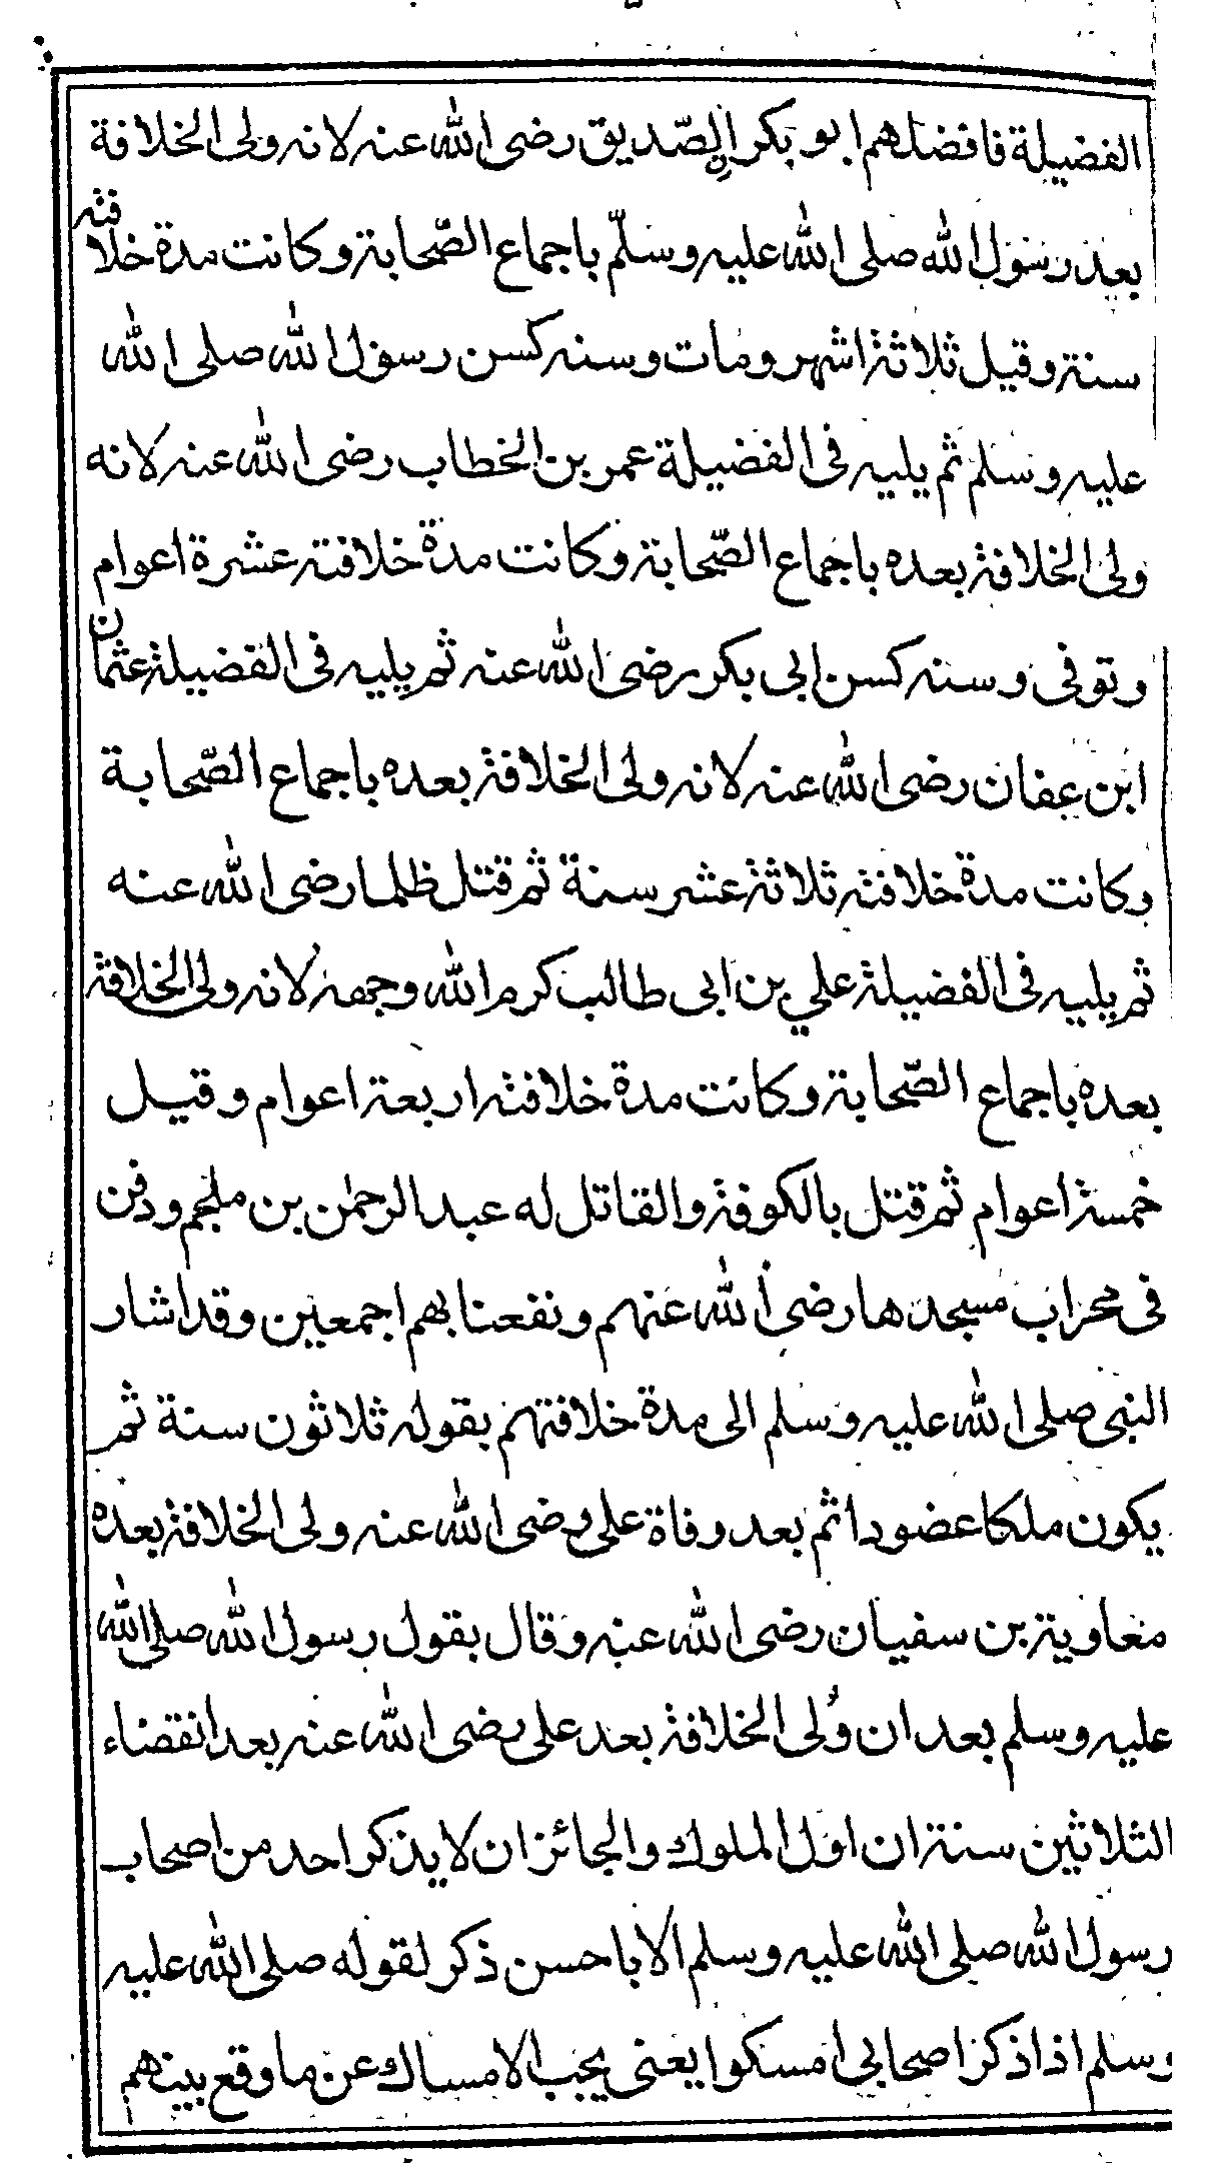 الفضيلة فافضلهم ابو بكر الصّديق رضى الله عنه لانه ولى الخلافة
بعد رسول الله صلى الله عليه وسلّم باجماع الصّحابة وكانت مدة خلافته
سنة وقيل ثلاثة اشهر ومات وسنه كسن رسول الله صلى الله
عليه وسلم ثم يليه فى الفضيلة عمر بن الخطاب رضى الله عنه لانه
ولى الخلافة بعده باجماع الصّحابة وكانت مدة خلافته عشرة اعوام
وتوفى وسنه كسن ابى بكر رضى الله عنه ثم يليه فى الفضيلة عثمان
ابن عفان رضى الله عنه لانه ولى الخلافة بعده باجماع الصّحابة
وكانت مدة خلافته ثلاثة عشر سنة ثم قتل ظلما رضى الله عنه
ثم يليه فى الفضيلة علي بن ابى طالب كرم الله وجهه لانه ولى الخلافة
بعده باجماع الصّحابة وكانت مدة خلافته اربعة اعوام وقيل
خمسة اعوام ثم قتل بالكوفة والقاتل له عبد الرحمٰن بن ملجم ودفن
فى محراب مسجدها رضى الله عنهم ونفعنا بهم اجمعين وقد اشار
النبى صلى الله عليه وسلم الى مدة خلافتهم بقوله ثلاثون سنة ثم
يكون ملكا عضودا ثم بعد وفاة على رضى الله عنه ولى الخلافة بعده
معاوية بن سفيان رضى الله عنه وقال بقول رسول الله صلى الله
عليه وسلم بعد ان وُلى الخلافة بعد على رضى الله عنه بعد انقضاء
الثلاثين سنة ان اول الملوك والجائز ان لا يذكر احد من اصحاب
رسول الله صلى الله عليه وسلم الا باحسن ذكر لقوله صلى الله عليه
وسلم اذا ذكر اصحابي امسكوا يعنى يجب الامساك عن ما وقع بينهم